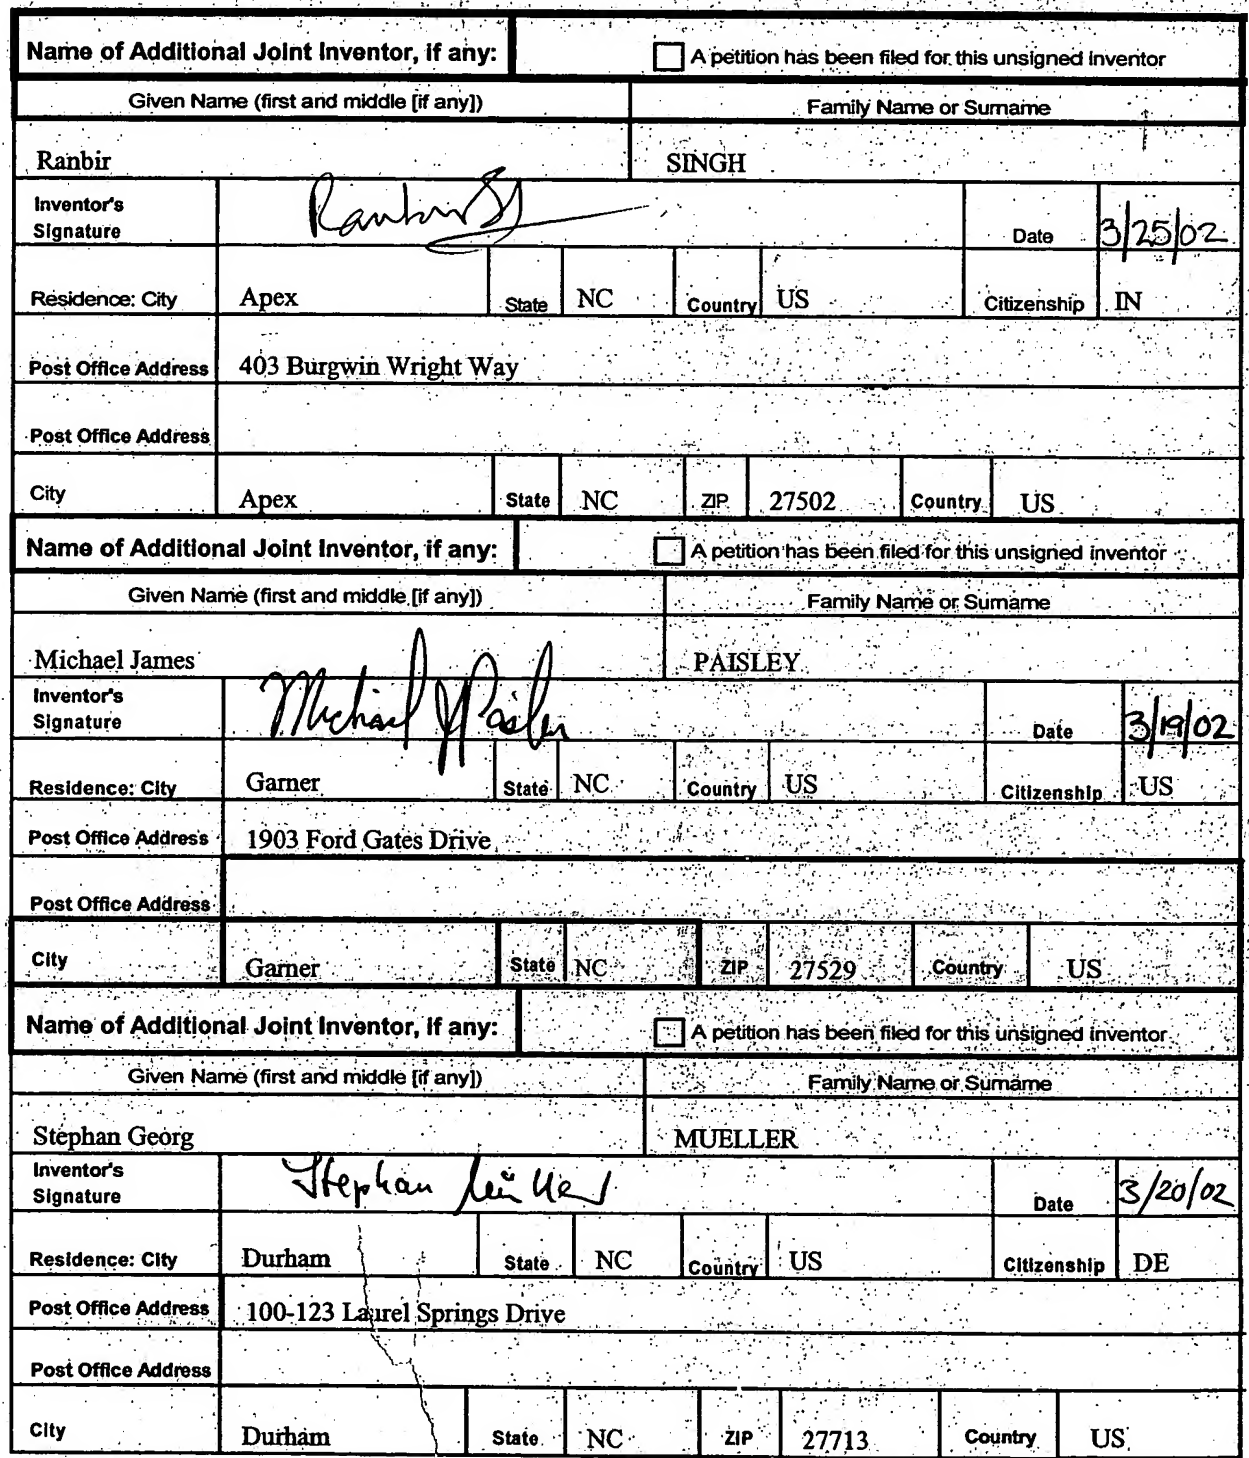 Name of Additional Joint Inventor, if any: A petition has been filed for this unsigned inventor
Given Name (first and middle [if any]) Family Name or Surname
Ranbir SINGH
Inventor's Signature Ranbir Date 3/25/02
Residence: City Apex State NC Country US Citizenship IN
Post Office Address 403 Burgwin Wright Way
Post Office Address
City Apex State NC ZIP 27502 Country US
Name of Additional Joint Inventor, if any: A petition has been filed for this unsigned inventor
Given Name (first and middle [if any]) Family Name or Surname
Michael James PAISLEY
Inventor's Signature Michael J Paisley Date 3/19/02
Residence: City Garner State NC Country US Citizenship US
Post Office Address 1903 Ford Gates Drive
Post Office Address
City Garner State NC ZIP 27529 Country US
Name of Additional Joint Inventor, if any: A petition has been filed for this unsigned inventor
Given Name (first and middle [if any]) Family Name or Surname
Stephan Georg MUELLER
Inventor's Signature Stephan Müller Date 3/20/02
Residence: City Durham State NC Country US Citizenship DE
Post Office Address 100-123 Laurel Springs Drive
Post Office Address
City Durham State NC ZIP 27713 Country US